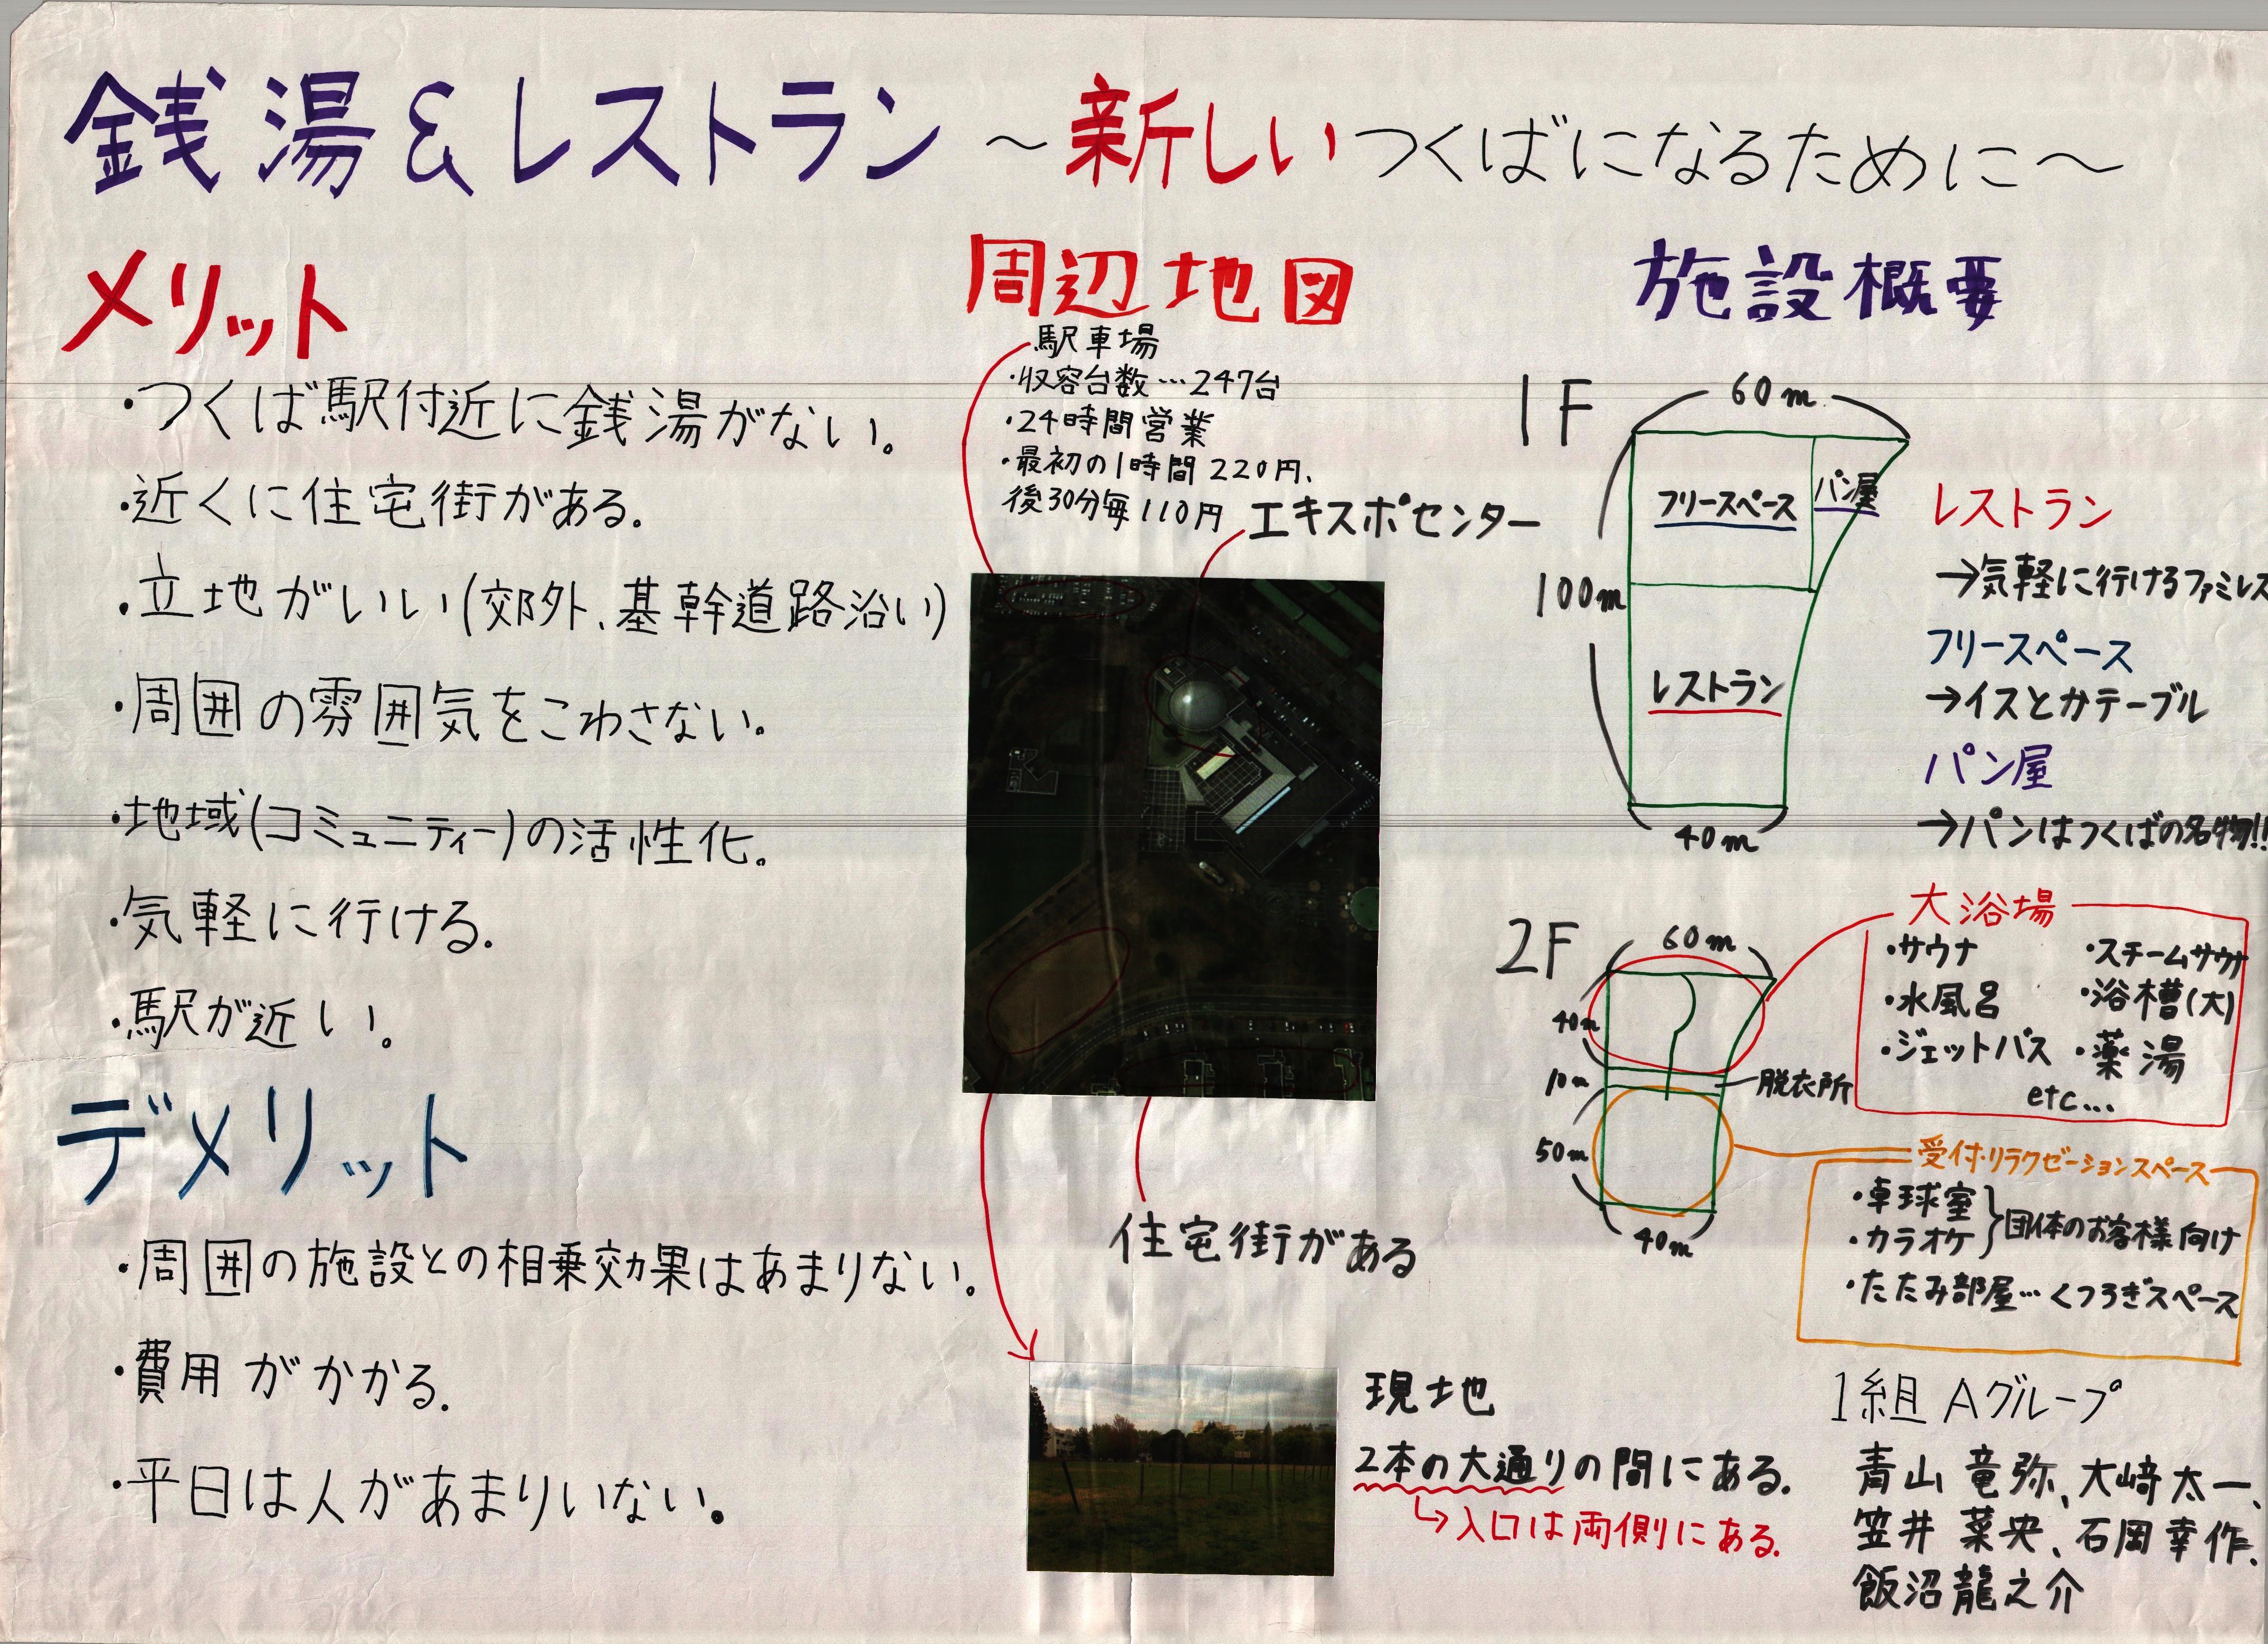 銭湯&レストラン ～新しいつくばになるために～
メリット
・つくば駅付近に銭湯がない。
・近くに住宅街がある。
・立地がいい(郊外、基幹道路沿い)
・周囲の雰囲気をこわさない。
・地域(コミュニティー)の活性化。
・気軽に行ける。
・駅が近い。
デメリット
・周囲の施設との相乗効果はあまりない。
・費用がかかる。
・平日は人があまりいない。
周辺地図
駅車場
・収容台数…247台
・24時間営業
・最初の1時間220円、
後30分毎110円
エキスポセンター
住宅街がある
現地
2本の大通りの間にある。
↳入口は両側にある。
施設概要
1F
60m
100m
フリースペース
パン屋
レストラン
40m
レストラン
→気軽に行けるファミレス
フリースペース
→イスとかテーブル
パン屋
→パンはつくばの名物!!
2F
60m
40m
10m
脱衣所
50m
40m
大浴場
・サウナ ・スチームサウナ
・水風呂 ・浴槽(大)
・ジェットバス ・薬湯
etc...
受付・リラクゼーションスペース
・卓球室
・カラオケ
}団体のお客様向け
・たたみ部屋…くつろぎスペース
1組 Aグループ
青山 竜弥、大﨑太一、
笠井 菜央、石岡幸作、
飯沼龍之介